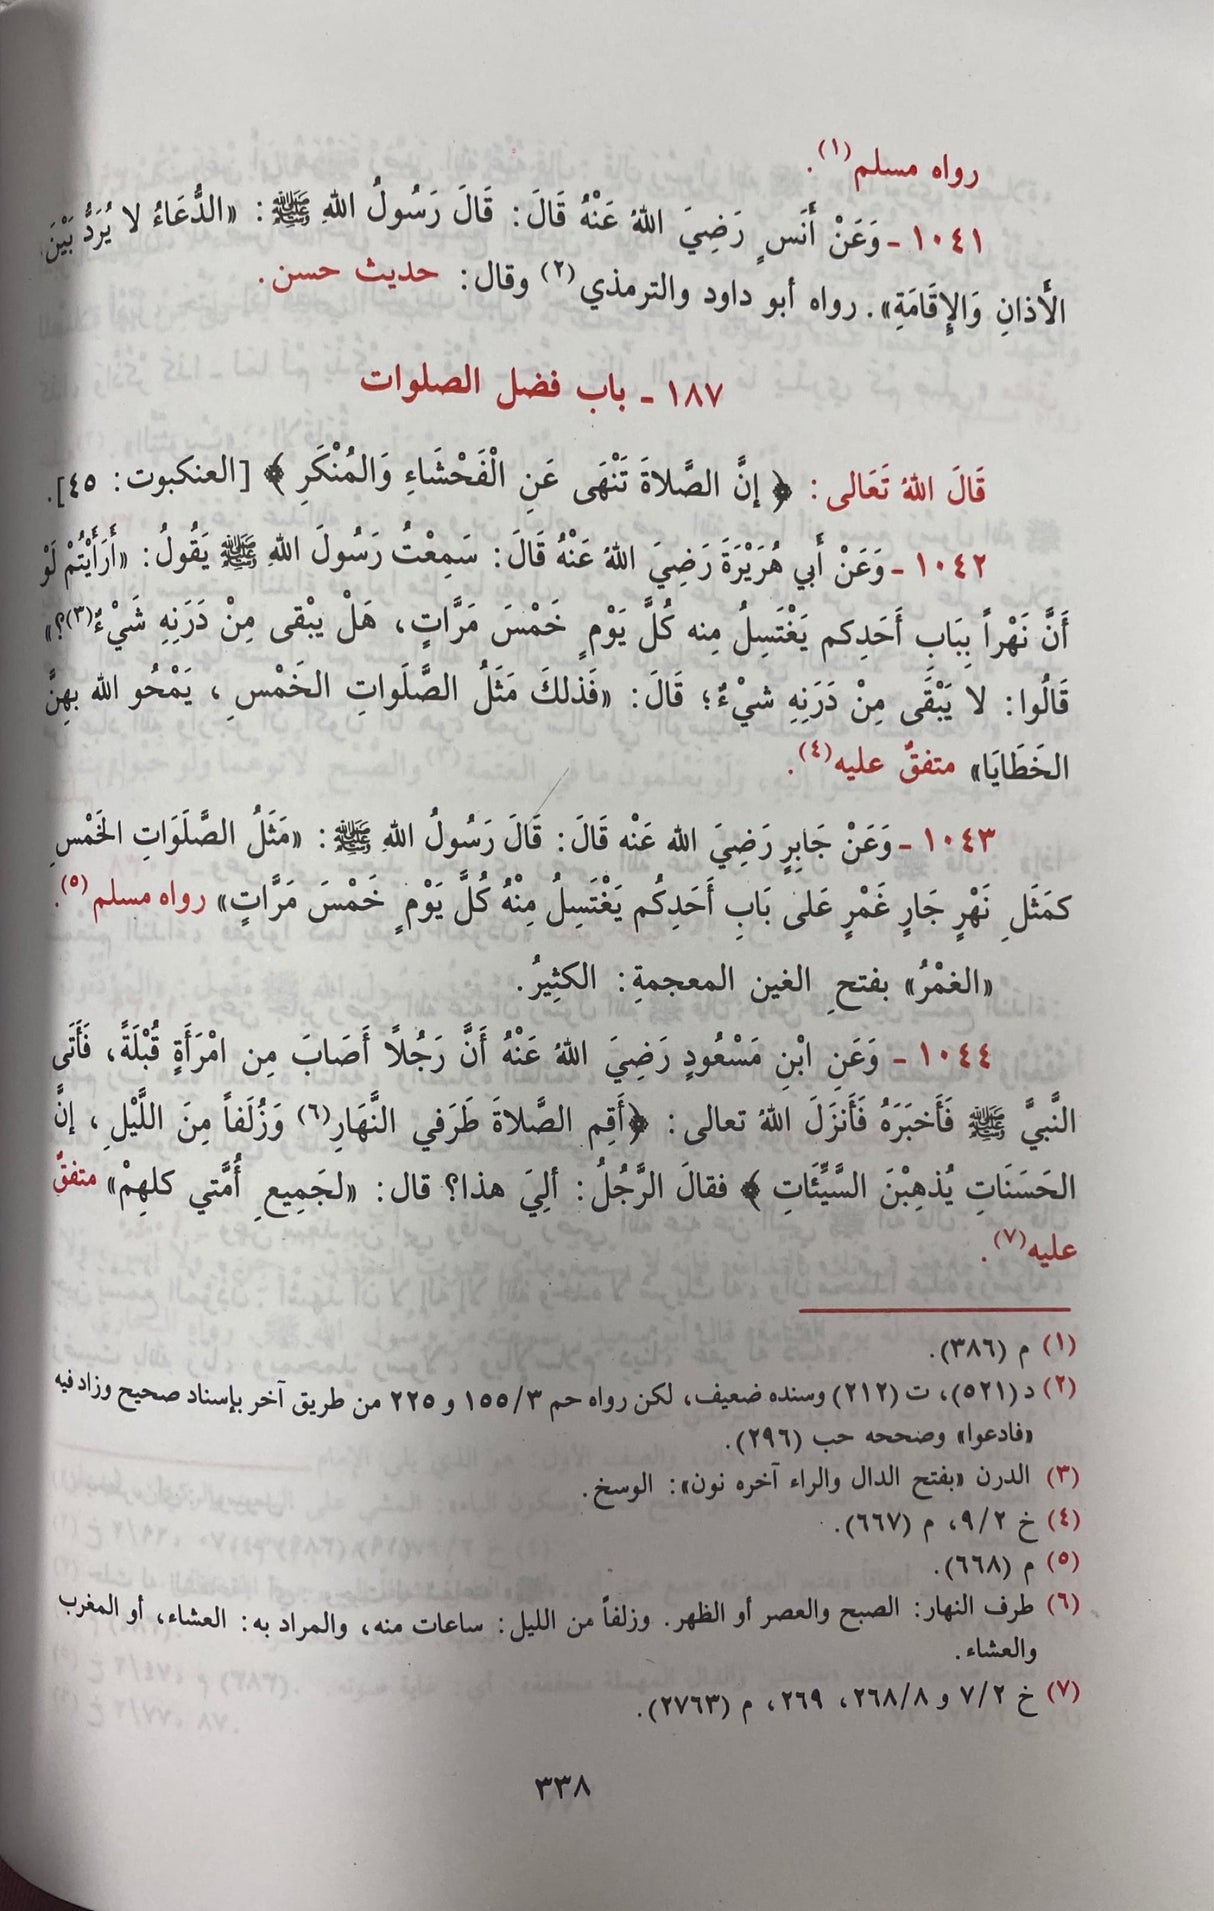 رواه مسلم(١).
١٠٤١ - وَعَنْ أَنَسٍ رَضِيَ اللهُ عَنْهُ قَالَ: قَالَ رَسُولُ اللهِ ﷺ: «الدُّعَاءُ لا يُرَدُّ بَيْنَ
الأَذانِ وَالإِقَامَةِ». رواه أبو داود والترمذي(٢) وقال: حديث حسن.
١٨٧ - باب فضل الصلوات
قَالَ اللهُ تَعَالى: ﴿ إنَّ الصَّلاةَ تَنْهَى عَنِ الْفَحْشَاءِ وَالمُنْكَرِ ﴾ [العنكبوت: ٤٥].
١٠٤٢ - وَعَنْ أَبي هُرَيْرَةَ رَضِيَ اللهُ عَنْهُ قَالَ: سَمِعْتُ رَسُولَ اللهِ ﷺ يَقُولُ: «أَرَأَيْتُمْ لَوْ
أَنَّ نَهْراً بِبَابِ أَحَدِكم يَغْتَسِلُ مِنه كُلَّ يَوْمٍ خَمْسَ مَرَّاتٍ، هَلْ يبْقى مِنْ دَرَنِهِ شَيْءٌ(٣)؟»
قَالُوا: لا يَبْقَى مِنْ دَرَنِهِ شيْءٌ؛ قَالَ: «فَذلكَ مَثَلُ الصَّلَواتِ الخَمْسِ، يَمْحُو الله بهِنَّ
الخَطَايَا» متفقٌ عليه(٤).
١٠٤٣ - وَعَنْ جَابِرٍ رَضِيَ الله عَنْه قَالَ: قَالَ رَسُولُ اللهِ ﷺ: «مَثَلُ الصَّلَوَاتِ الخَمْسِ
كمَثَلِ نَهْرٍ جَارٍ غَمْرٍ عَلى بَابِ أَحَدِكُم يَغْتَسِلُ مِنْهُ كُلَّ يَوْمٍ خَمْسَ مَرَّاتٍ» رواه مسلم(٥).
«الغمْرُ» بفتحِ الغين المعجمةِ: الكثِيرُ.
١٠٤٤ - وَعَنِ ابْنِ مَسْعُودٍ رَضِيَ اللهُ عَنْهُ أَنَّ رَجُلاً أَصَابَ مِن امْرَأَةٍ قُبْلَةً، فَأَتَى
النَّبيَّ ﷺ فَأَخبَرَهُ فَأَنزَلَ اللهُ تعالى: ﴿أَقِم الصَّلاةَ طَرَفي النَّهَارِ(٦) وَزُلَفاً مِنَ اللَّيْلِ، إنَّ
الحَسَنَاتِ يُذهِبْنَ السَّيِّئَاتِ ﴾ فقالَ الرَّجُلُ: ألِيَ هذا؟ قال: «لجَمِيعِ أُمَّتي كلهِمْ» متفقٌ
عليه(٧).
(١) م (٣٨٦).
(٢) د (٥٢١)، ت (٢١٢) وسنده ضعيف، لكن رواه حم ١٥٥/٣ و ٢٢٥ من طريق آخر بإسناد صحيح وزاد فيه
«فادعوا» وصححه حب (٢٩٦).
(٣) الدرن «بفتح الدال والراء آخره نون»: الوسخ.
(٤) خ ٩/٢، م (٦٦٧).
(٥) م (٦٦٨).
(٦) طرف النهار: الصبح والعصر أو الظهر. وزلفاً من الليل: ساعات منه، والمراد به: العشاء، أو المغرب
والعشاء.
(٧) خ ٧/٢ و ٢٦٨/٨، ٢٦٩، م (٢٧٦٣).
٣٣٨